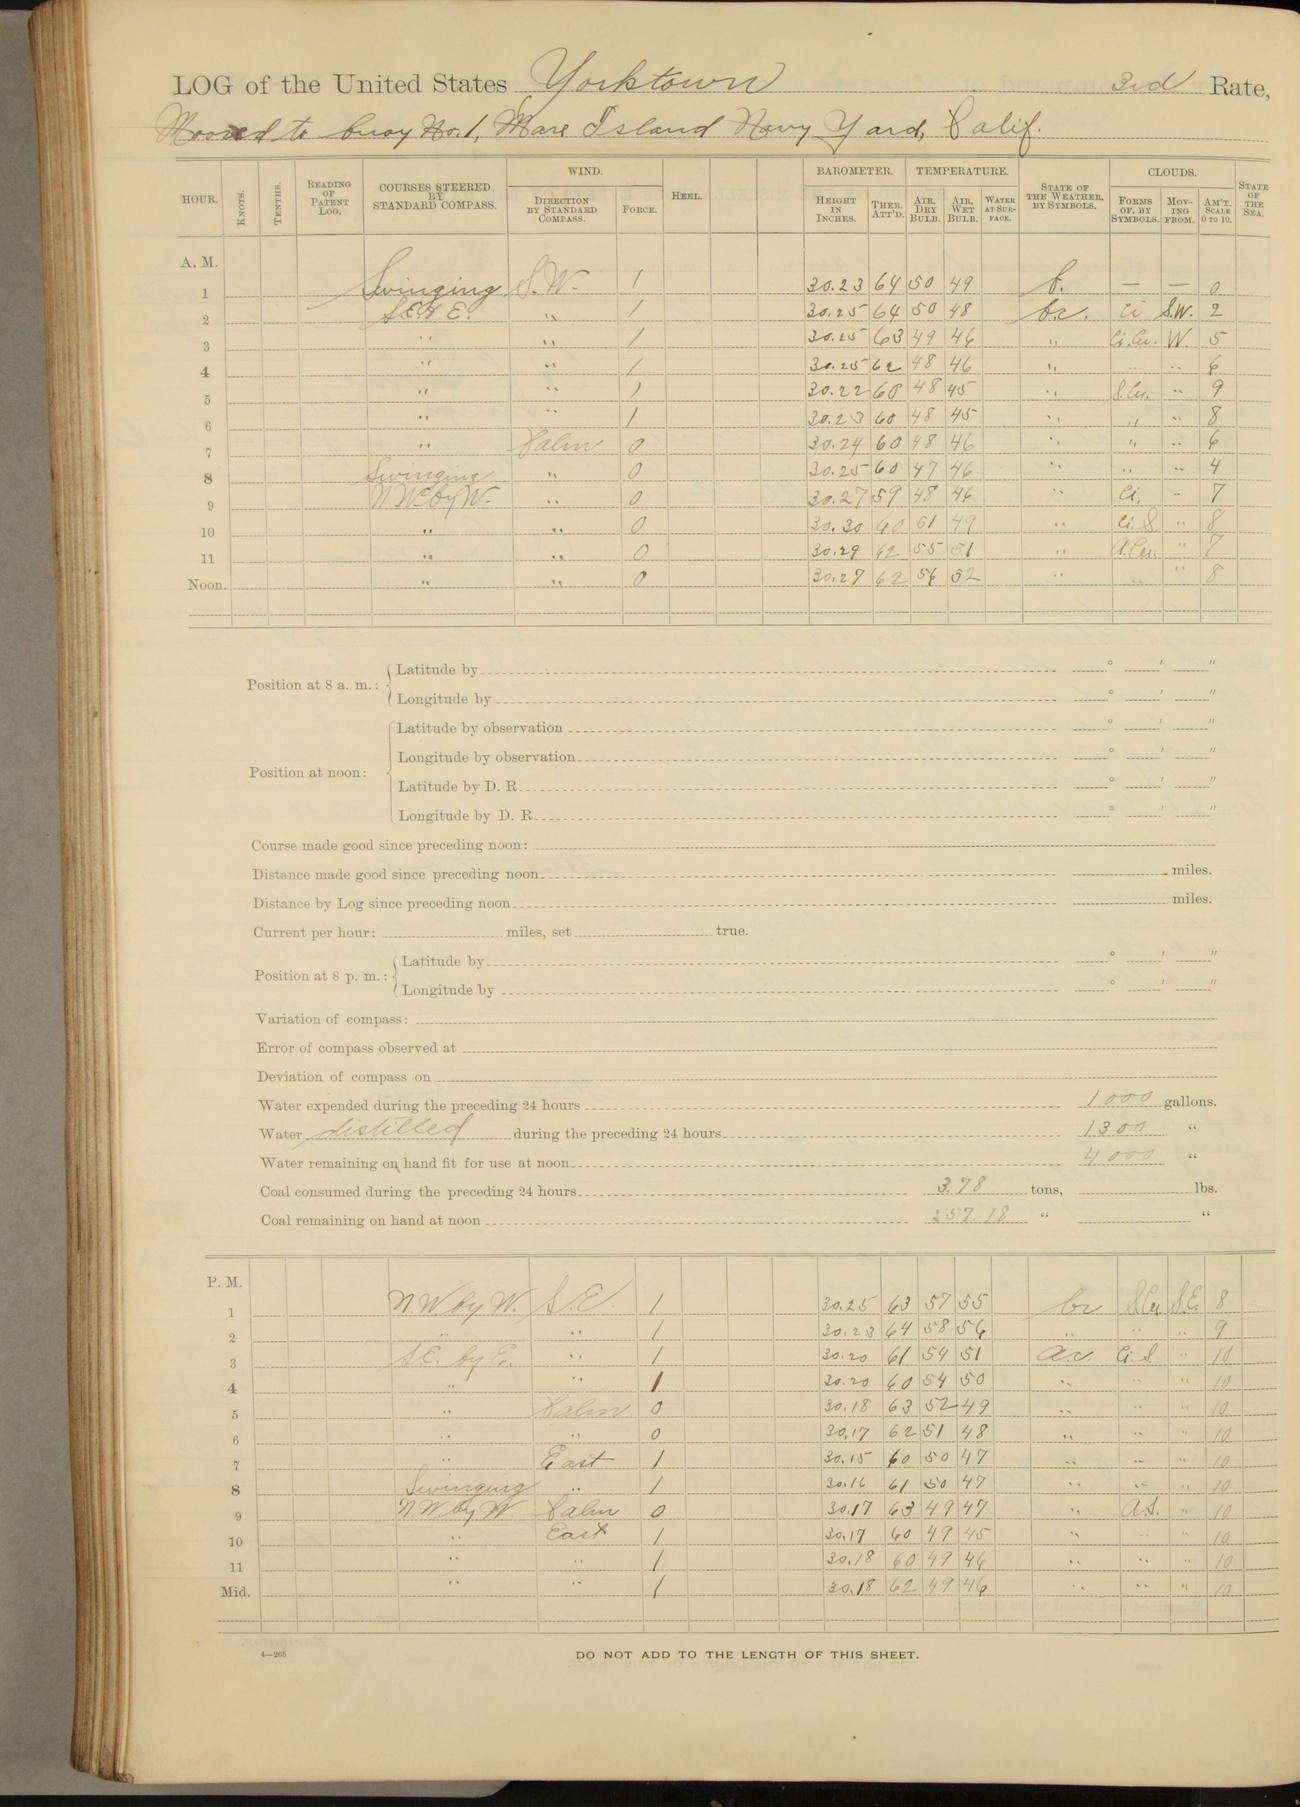 LOG of the United States Yorktown 3rd Rate,
Moored to buoy No. 1, Mare Island Navy Yard, Calif.
HOUR. KNOTS. TENTHS. READING OF PATENT LOG. COURSES STEERED BY STANDARD COMPASS. WIND. DIRECTION BY STANDARD COMPASS. FORCE. HEEL. BAROMETER. HEIGHT IN INCHES. THER. ATT'D. TEMPERATURE. AIR, DRY BULB. AIR, WET BULB. WATER AT SURFACE. STATE OF THE WEATHER, BY SYMBOLS. CLOUDS. FORMS OF, BY SYMBOLS. MOVING FROM. AM'T. SCALE 0 TO 10. STATE OF THE SEA.
A. M.
1 Swinging S.W. 1 30.23 64 50 49 b. — — 0
2 E. " 1 30.25 64 50 48 b.c. Ci S.W. 2
3 " " 1 30.25 63 49 46 " Ci.Cu. W. 5
4 " " 1 30.25 62 48 46 " " " 6
5 " " 1 30.22 60 48 45 " S.Cu. " 9
6 " " 1 30.23 60 48 45 " " " 8
7 " Calm 0 30.24 60 48 46 " " " 6
8 Swinging " 0 30.25 60 47 46 " " " 4
9 N.W. by W. " 0 30.27 59 48 46 " Ci. " 7
10 " " 0 30.30 60 51 49 " Ci.S. " 8
11 " " 0 30.29 62 55 51 " A.Cu. " 7
Noon. " " 0 30.27 62 56 52 " " " 8
Position at 8 a. m.: Latitude by ° ' "
Longitude by ° ' "
Position at noon: Latitude by observation ° ' "
Longitude by observation ° ' "
Latitude by D. R. ° ' "
Longitude by D. R. ° ' "
Course made good since preceding noon:
Distance made good since preceding noon miles.
Distance by Log since preceding noon miles.
Current per hour: miles, set true.
Position at 8 p. m.: Latitude by ° ' "
Longitude by ° ' "
Variation of compass:
Error of compass observed at
Deviation of compass on
Water expended during the preceding 24 hours 1000 gallons.
Water distilled during the preceding 24 hours 1300 "
Water remaining on hand fit for use at noon 4000 "
Coal consumed during the preceding 24 hours 3.78 tons, lbs.
Coal remaining on hand at noon 257.18 " "
P. M.
1 N.W. by W. S.E. 1 30.25 63 57 55 bc S.Cu. S.E. 8
2 " " 1 30.23 64 58 56 " " " 9
3 S.E. by E. " 1 30.20 61 54 51 o.c. Ci.S. " 10
4 " " 1 30.20 60 54 50 " " " 10
5 " Calm 0 30.18 63 52 49 " " " 10
6 " " 0 30.17 62 51 48 " " " 10
7 " East 1 30.15 60 50 47 " " " 10
8 Swinging " 1 30.16 61 50 47 " " " 10
9 N.W. by W. Calm 0 30.17 63 49 47 " A.S. " 10
10 " East 1 30.17 60 49 45 " " " 10
11 " " 1 30.18 60 49 46 " " " 10
Mid. " " 1 30.18 62 49 46 " " " 10
4—265
DO NOT ADD TO THE LENGTH OF THIS SHEET.